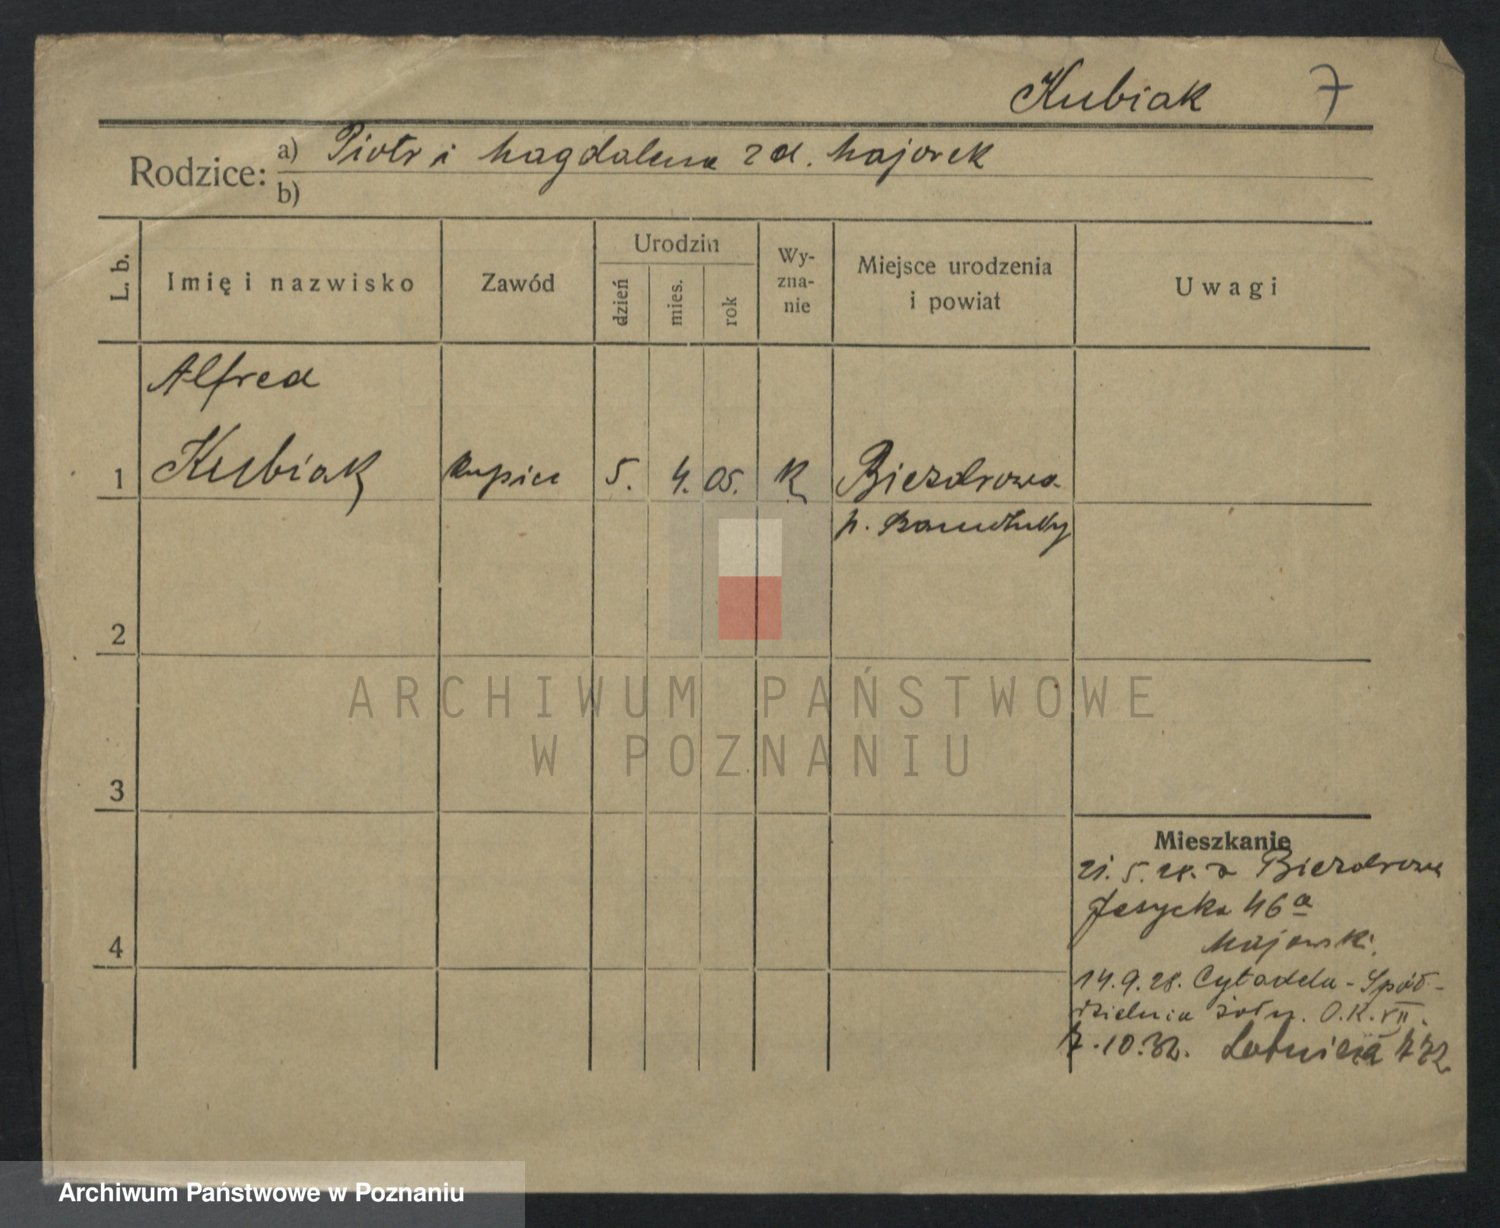 Kubiak 7
Rodzice: a) Piotr i Magdalena z d. Majorek
b)
L. b. Imię i nazwisko Zawód Urodzin dzień mies. rok Wy-zna-nie Miejsce urodzenia i powiat Uwagi
Alfred
1 Kubiak kupiec 5. 4. 05. k Biezdrowo
p. Szamotuły
2
ARCHIWUM PAŃSTWOWE
W POZNANIU
3
Mieszkanie
21.5.28. z Biezdrowa
46a
4 Majewski.
14.9.28. Cytadela - Spół-
dzielnia żołn. O.K. VII.
7.10.32. Lotnicza
Archiwum Państwowe w Poznaniu